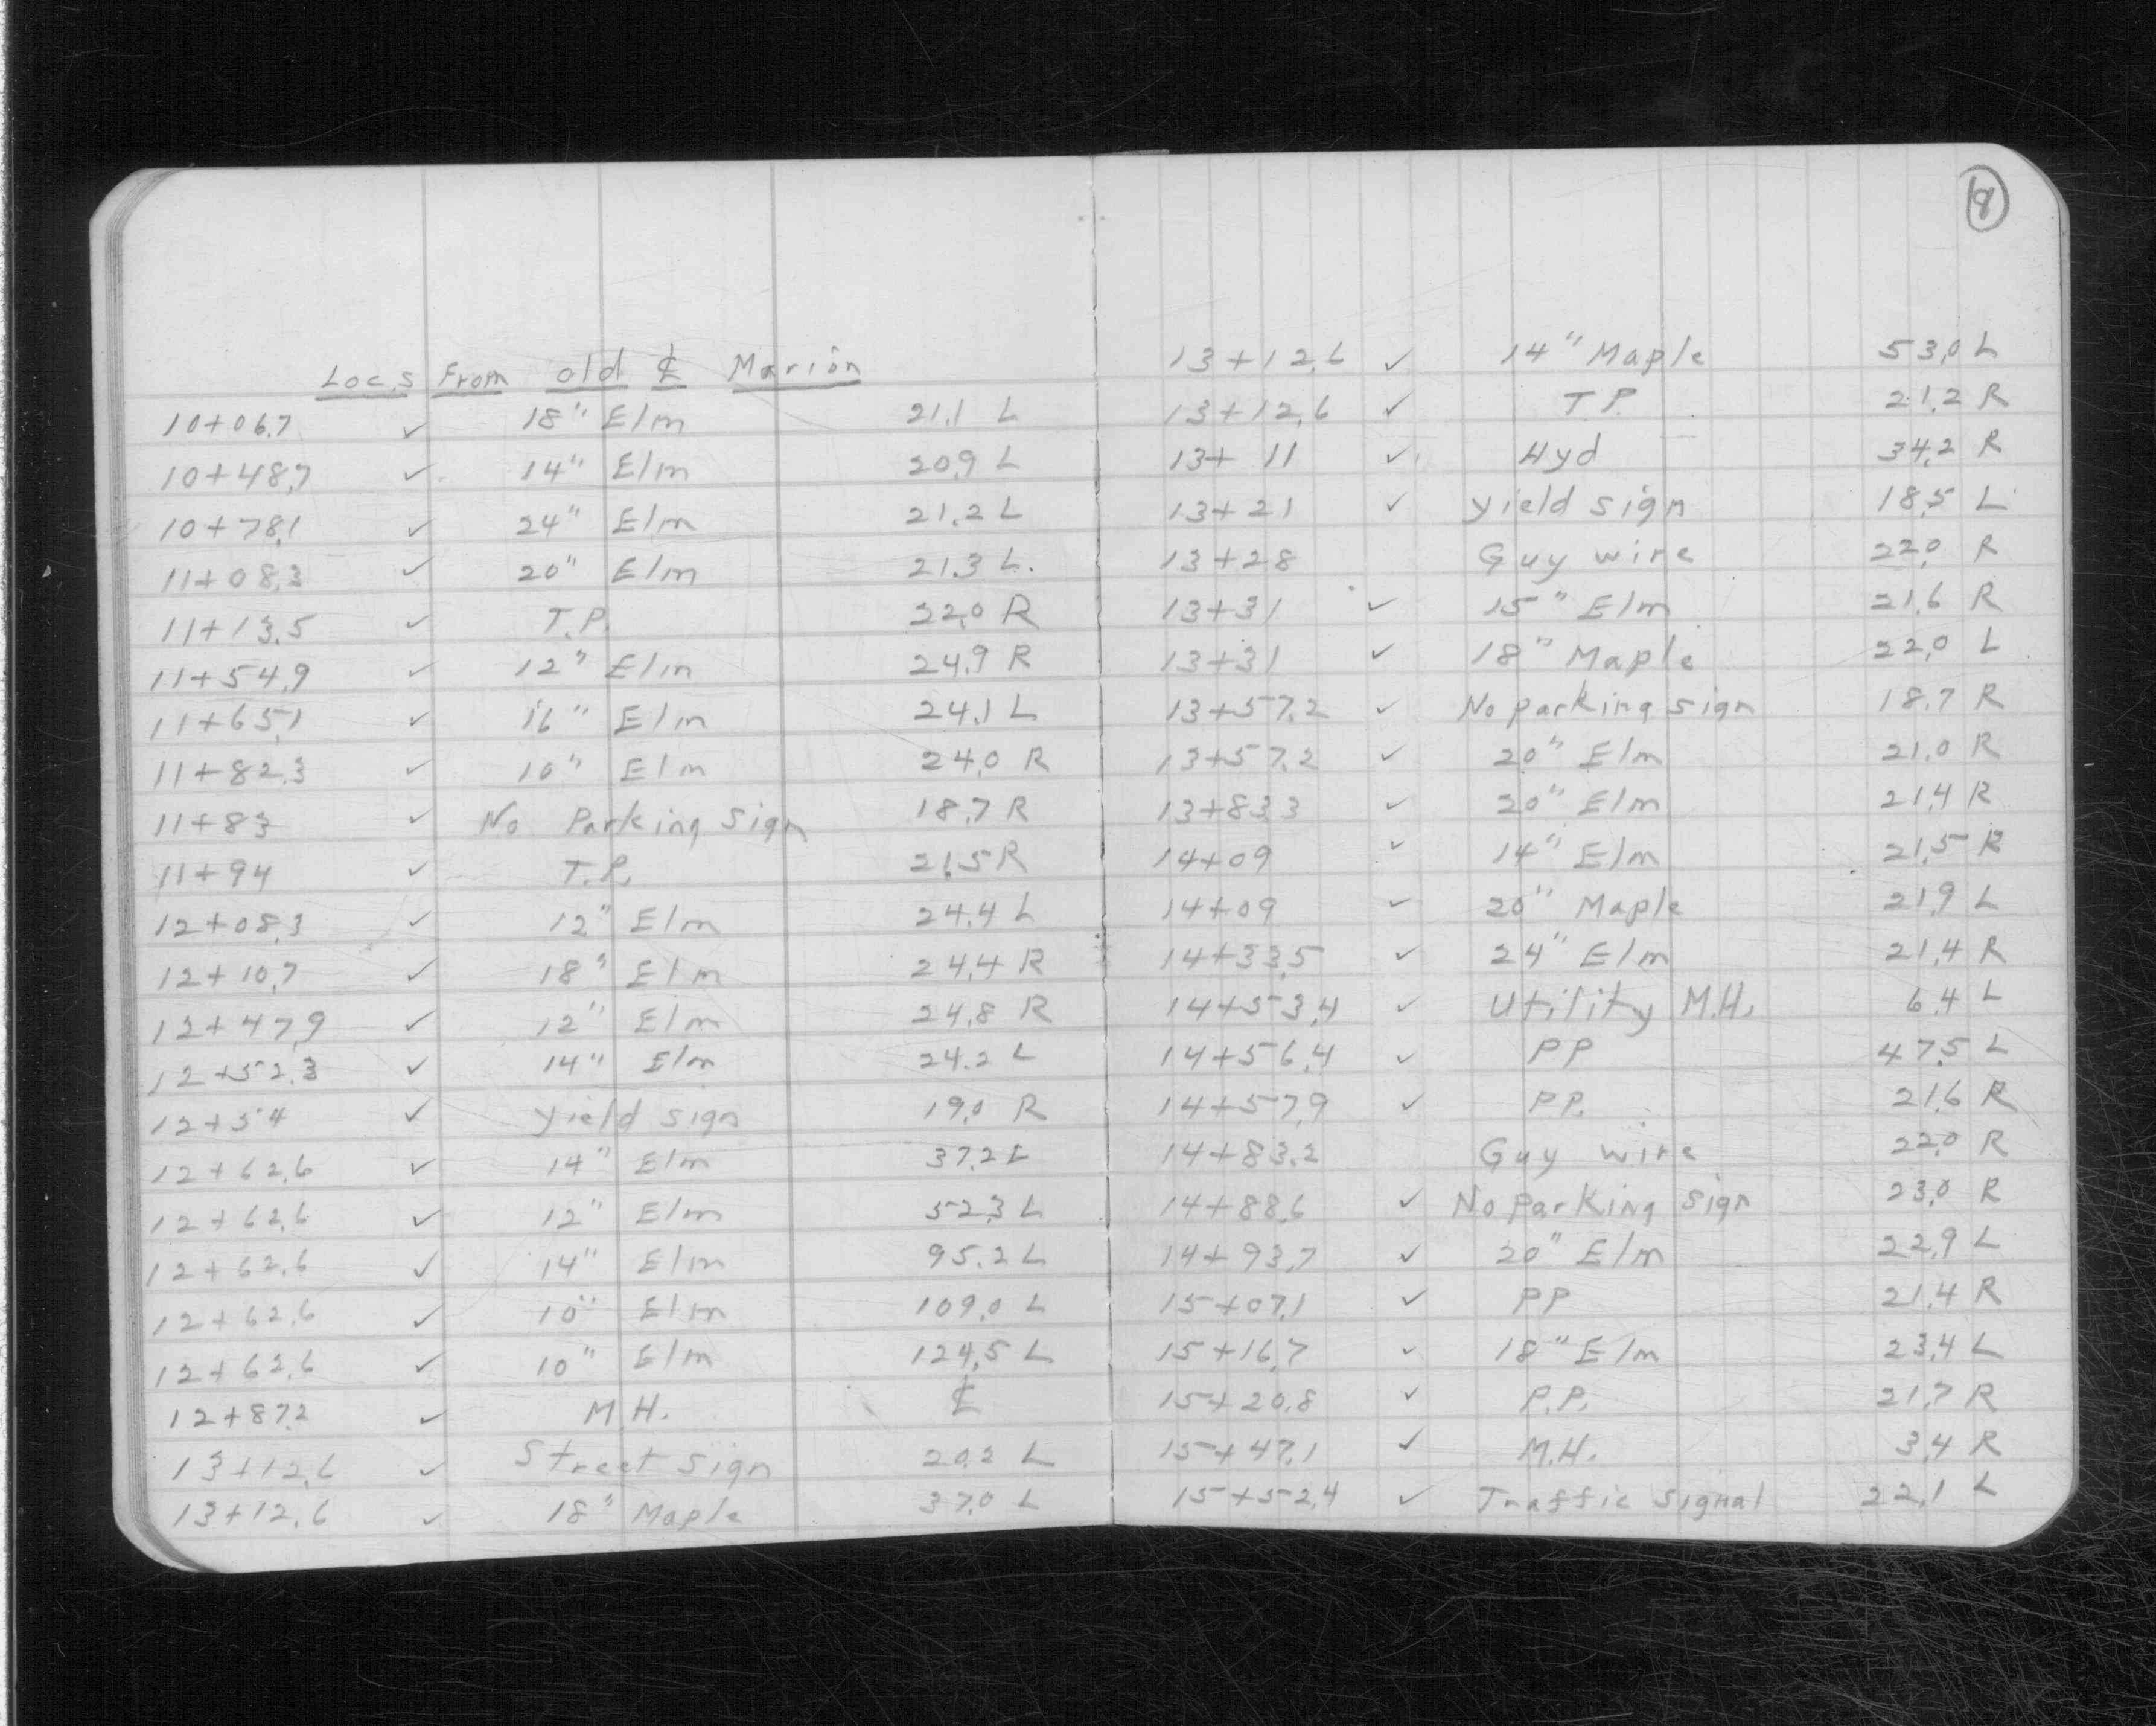 Loc.s From old ℄ Marion
10+06.7 ✓ 18" Elm 21.1 L
10+48.7 ✓ 14" Elm 20.9 L
10+78.1 ✓ 24" Elm 21.2 L
11+08.3 ✓ 20" Elm 21.3 L.
11+13.5 ✓ T.P. 22.0 R
11+54.9 ✓ 12" Elm 24.9 R
11+65.1 ✓ 16" Elm 24.1 L
11+82.3 ✓ 10" Elm 24.0 R
11+83 ✓ No Parking Sign 18.7 R
11+94 ✓ T.P. 21.5 R
12+08.3 ✓ 12" Elm 24.4 L
12+10.7 ✓ 18" Elm 24.4 R
12+47.9 ✓ 12" Elm 24.8 R
12+52.3 ✓ 14" Elm 24.2 L
12+54 ✓ yield sign 19.0 R
12+62.6 ✓ 14" Elm 37.2 L
12+62.6 ✓ 12" Elm 52.3 L
12+62.6 ✓ 14" Elm 95.2 L
12+62.6 ✓ 10" Elm 109.0 L
12+62.6 ✓ 10" Elm 124.5 L
12+87.2 ✓ M.H. ℄
13+12.6 ✓ Street Sign 20.2 L
13+12.6 ✓ 18" Maple 37.0 L
18
13+12.6 ✓ 14" Maple 53.0 L
13+12.6 ✓ T.P. 21.2 R
13+11 ✓ Hyd 34.2 R
13+21 ✓ yield sign 18.5 L
13+28 Guy wire 22.0 R
13+31 ✓ 15" Elm 21.6 R
13+31 ✓ 18" Maple 22.0 L
13+57.2 ✓ No parking sign 18.7 R
13+57.2 ✓ 20" Elm 21.0 R
13+83.3 ✓ 20" Elm 21.4 R
14+09 ✓ 14" Elm 21.5 R
14+09 ✓ 20" Maple 21.9 L
14+33.5 ✓ 24" Elm 21.4 R
14+53.4 ✓ Utility M.H. 6.4 L
14+56.4 ✓ PP 47.5 L
14+57.9 ✓ P.P. 21.6 R
14+83.2 Guy wire 22.0 R
14+88.6 ✓ No parking sign 23.0 R
14+93.7 ✓ 20" Elm 22.9 L
15+07.1 ✓ PP 21.4 R
15+16.7 ✓ 18" Elm 23.4 L
15+20.8 ✓ P.P. 21.7 R
15+47.1 ✓ M.H. 3.4 R
15+52.4 ✓ Traffic Signal 22.1 L